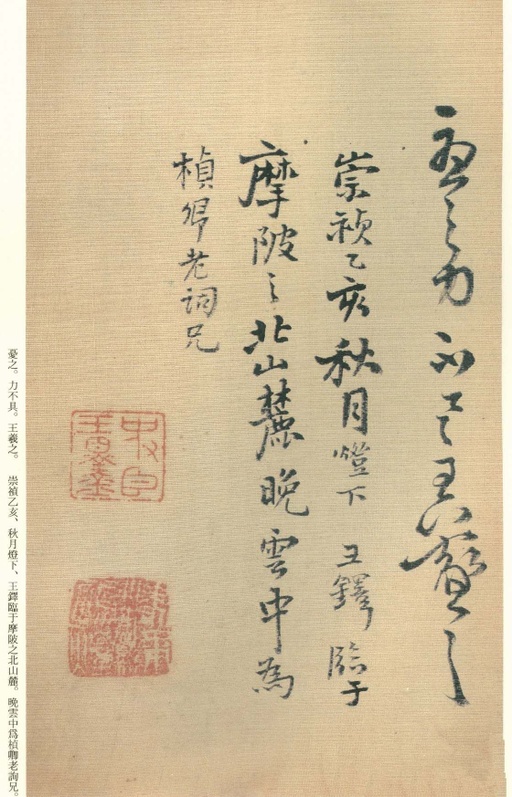 憂之力不具王羲之
崇禎乙亥秋月燈下王鐸臨于
摩陂之北山麓晚雲中為
楨卿老詞兄
憂之。力不具。王羲之。　崇禎乙亥、秋月燈下、王鐸臨于摩陂之北山麓。晚雲中爲楨卿老詞兄。